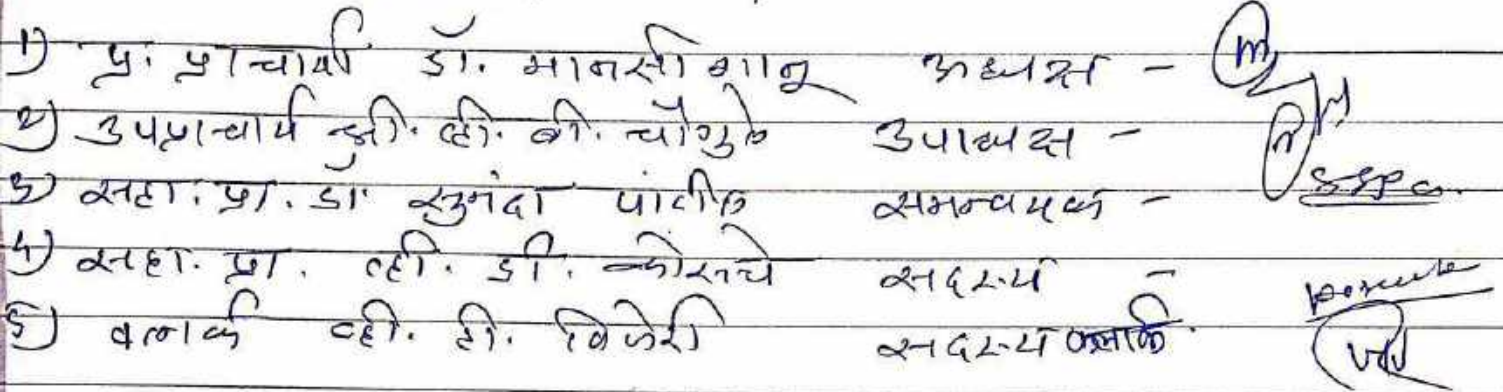 १) प्र. प्राचार्या डॉ. मानसी गानू अध्यक्ष -
२) उपप्राचार्य श्री. व्ही. बी. चौगुले उपाध्यक्ष -
३) सहा. प्रा. डॉ सुनंदा पाटील समन्वयक -
४) सहा. प्रा. व्ही. डी. सदस्य -
५) क्लार्क व्ही. टी. सदस्य